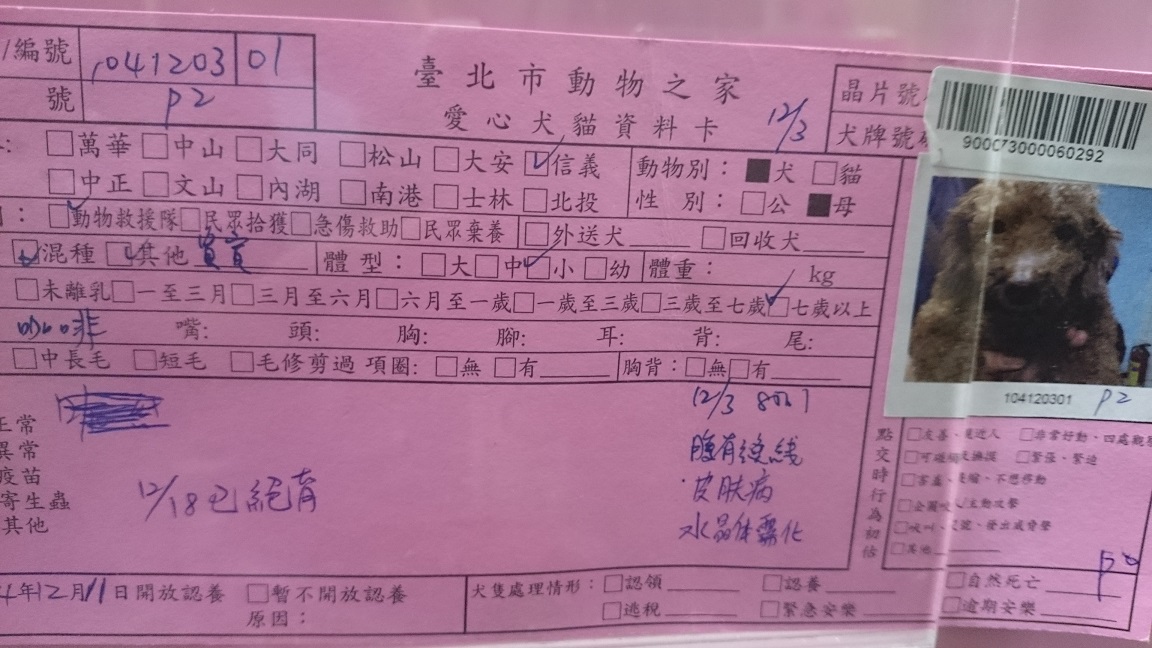 /編號 104120301
號 P2
臺北市動物之家
愛心犬貓資料卡 12/3
晶片號
犬牌號
900073000060292
□萬華 □中山 □大同 □松山 □大安 ☑信義
□中正 □文山 □內湖 □南港 □士林 □北投
動物別：■犬 □貓
性別：□公 ■母
☑動物救援隊 □民眾拾獲 □急傷救助 □民眾棄養 □外送犬 □回收犬
☑混種 □其他 貴賓 體型：□大 □中 ☑小 □幼 體重： kg
□未離乳 □一至三月 □三月至六月 □六月至一歲 □一歲至三歲 □三歲至七歲 ☑七歲以上
咖啡 嘴: 頭: 胸: 腳: 耳: 背: 尾:
□中長毛 □短毛 □毛修剪過 項圈:□無 □有 胸背：□無 □有
104120301 P2
正常
異常
疫苗
寄生蟲
其他
12/18已絕育
12/3
腹有縫線
皮肤病
水晶体霧化
點交時行為初估
□友善、親近人 □非常好動、四處
□緊張、緊迫
□害羞、畏縮、不想移動
□企圖咬人/主動攻擊
□吠叫、低吼、發出威脅聲
□其他
4年12月11日開放認養 □暫不開放認養
原因：
犬隻處理情形：□認領 □認養 □自然死亡
□逃脫 □緊急安樂 □逾期安樂